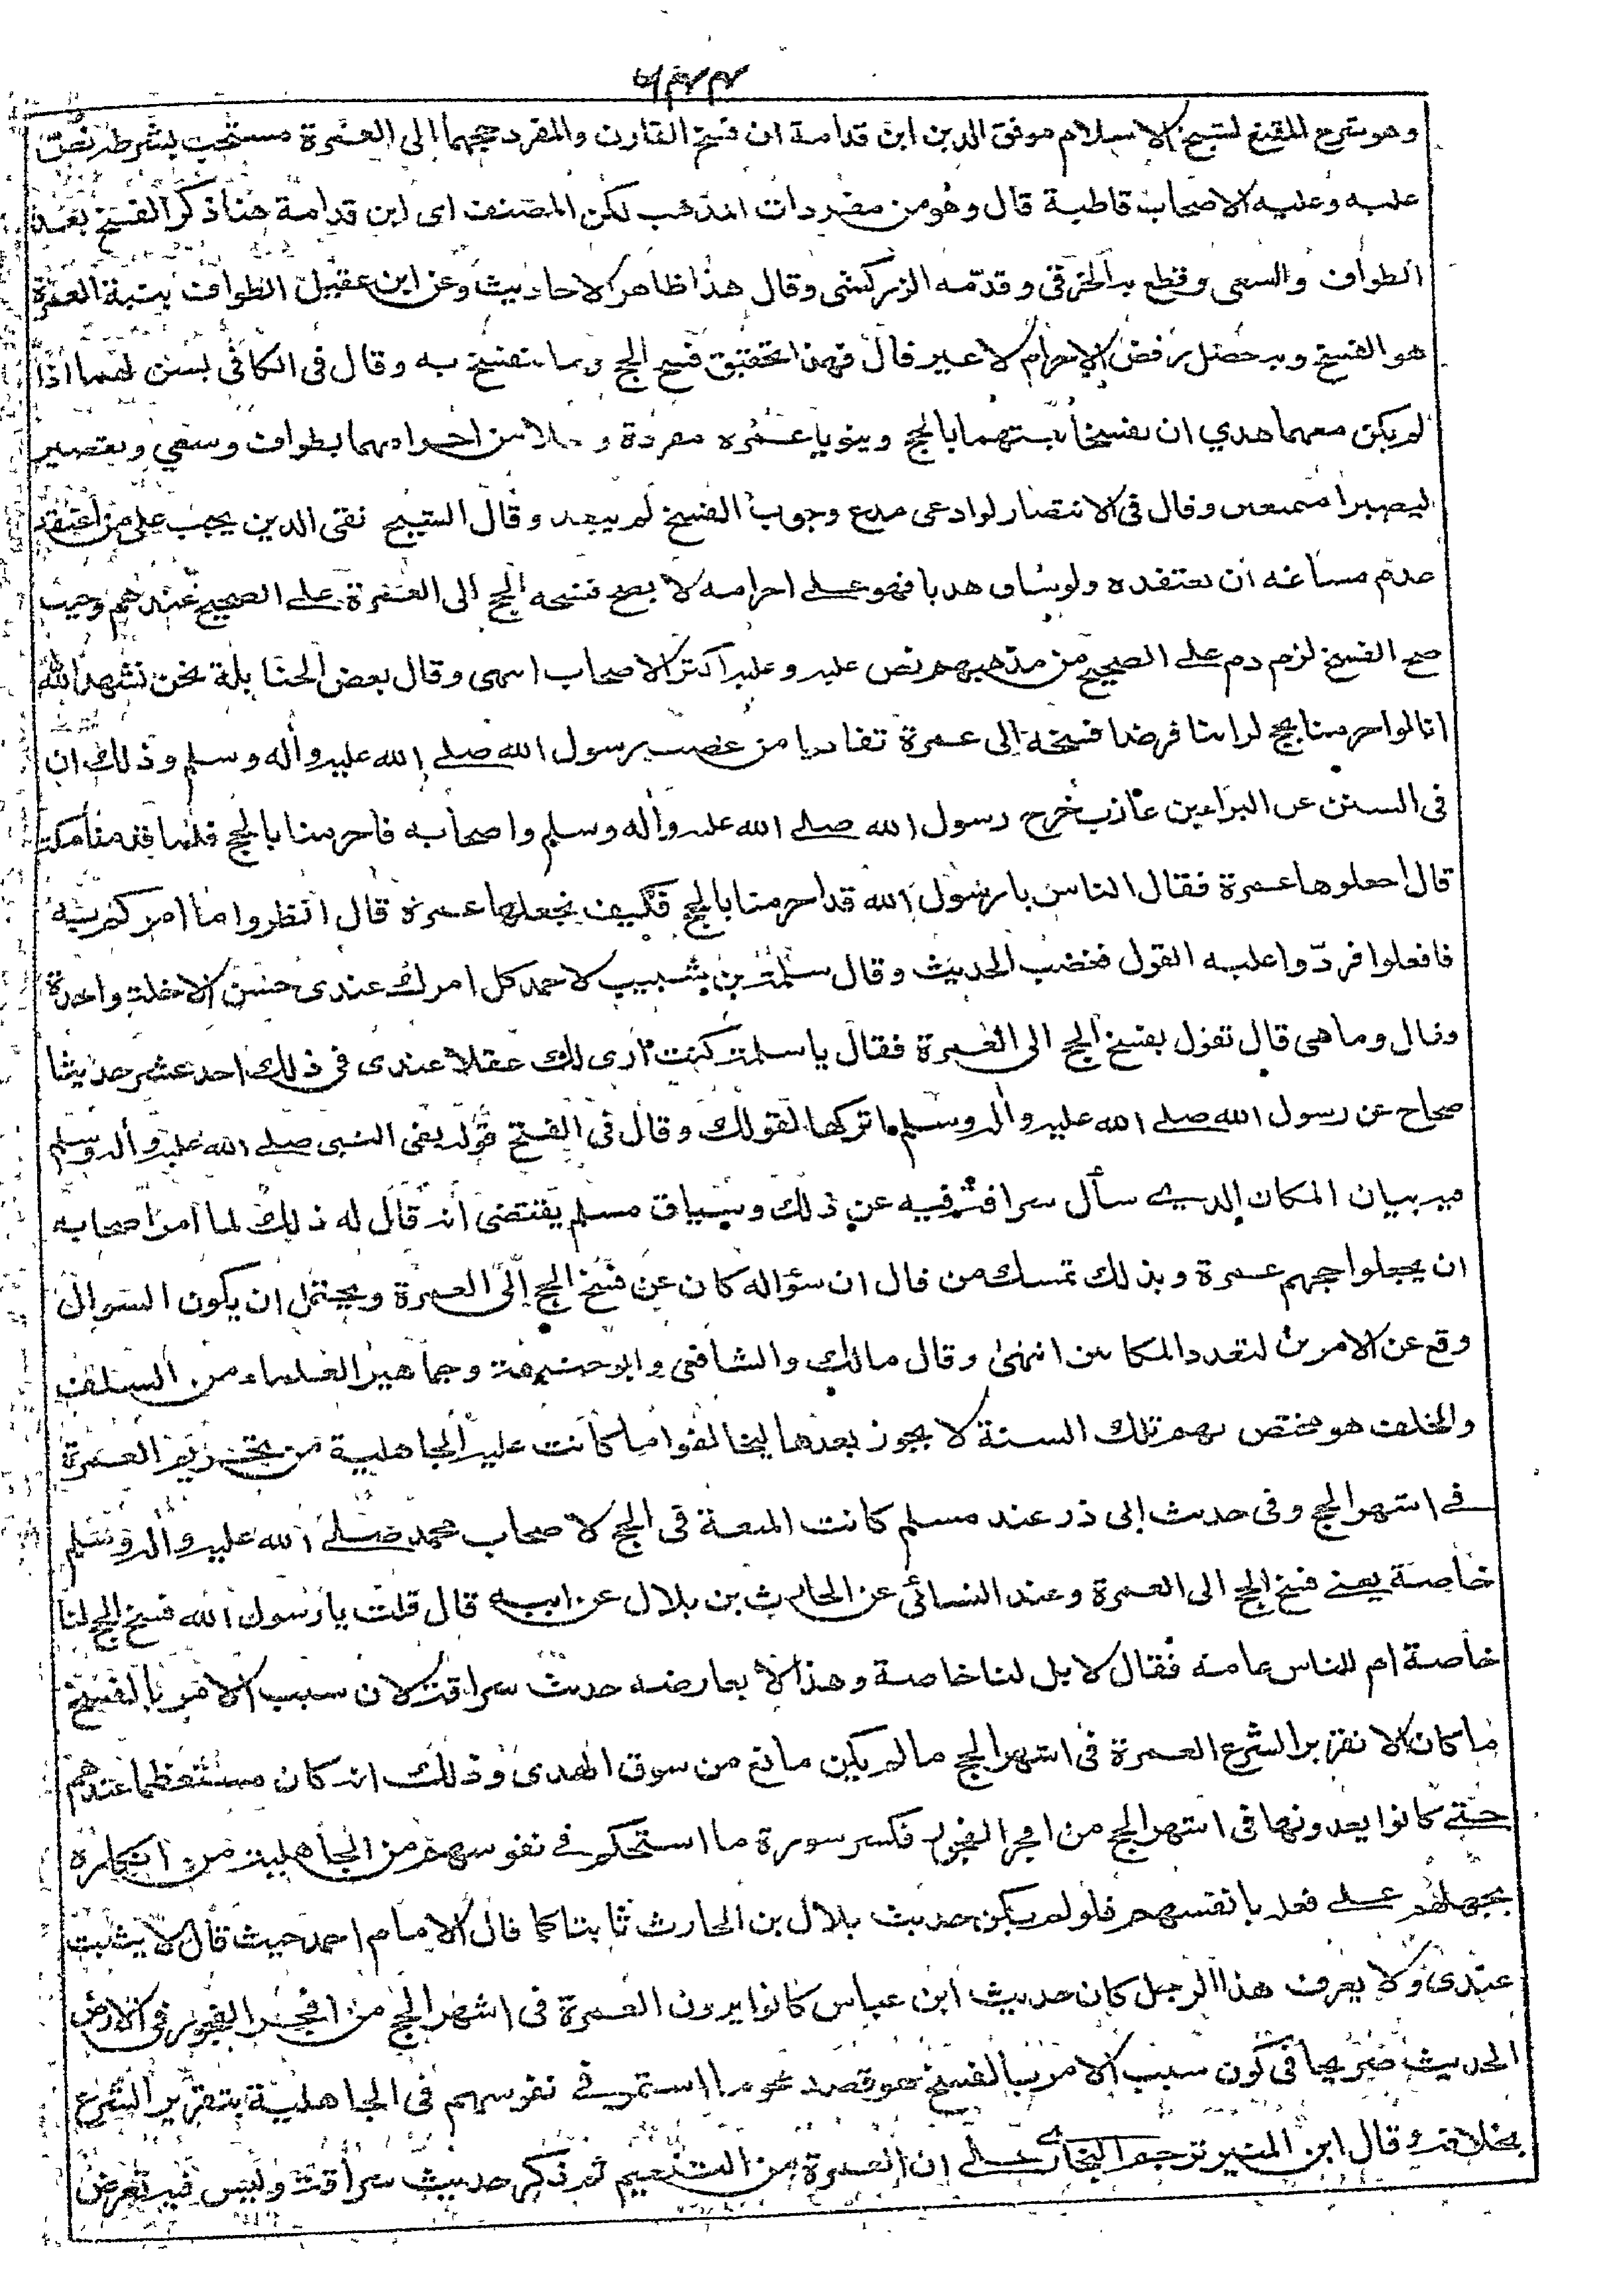 وهو شرح المقنع لشيخ الاسلام موفق الدين ابن قدامة ان فسخ القارن والمفرد حجهما الى العمرة مستحب بشرطه نص
عليه وعليه الاصحاب قاطبة قال وهو من مفردات المذهب لكن المصنف اى ابن قدامة هنا ذكر الفسخ بعد
الطواف والسعى وقطع به الخرقى وقدمه الزركشى وقال هذا ظاهر الاحاديث وعن ابن عقيل الطواف بنية العمرة
هو الفسخ وبه حصل رفض الاحرام لا غير قال فهذا تحقيق فسخ الحج وما ينفسخ به وقال فى الكافى يسن لهما اذا
لم يكن معهما هدي ان يفسخا نيتهما بالحج وينويا عمرة مفردة ويحلا من احرامهما بطواف وسعي وتقصير
ليصيرا متمتعين وقال فى الانتصار لو ادعى مدع وجوب الفسخ لم يبعد وقال الشيخ تقى الدين يجب على من اعتقد
عدم مساغه ان يعتقده ولو ساق هديا فهو على احرامه لا يصح فسخه الحج الى العمرة على الصحيح عندهم وحيث
صح الفسخ لزم دم على الصحيح من مذهبهم نص عليه وعليه اكثر الاصحاب انتهى وقال بعض الحنابلة نحن نشهد الله
انا لو احرمنا بحج لرأينا فرضا فسخه الى عمرة تفاديا من غضب رسول الله صلى الله عليه وأله وسلم وذلك ان
فى السنن عن البراء بن عازب خرج رسول الله صلى الله عليه وأله وسلم واصحابه فاحرمنا بالحج فلما قدمنا مكة
قال اجعلوها عمرة فقال الناس يا رسول الله قد احرمنا بالحج فكيف نجعلها عمرة قال انظروا ما امركم به
فافعلوا فردوا عليه القول فغضب الحديث وقال سلمة بن شبيب لاحمد كل امرك عندى حسن الا خلة واحدة
وقال وما هى قال تقول بفسخ الحج الى العمرة فقال يا سلمة كنت ارى لك عقلا عندى فى ذلك احد عشر حديثا
صحاح عن رسول الله صلى الله عليه وأله وسلم ما تركها لقولك وقال فى الفتح قوله يعنى النبى صلى الله عليه وأله وسلم
فيه بيان المكان الذي سأل سراقة فيه عن ذلك وسياق مسلم يقتضى انه قال له ذلك لما امر اصحابه
ان يجعلوا حجهم عمرة وبذلك تمسك من قال ان سؤاله كان عن فسخ الحج الى العمرة ويحتمل ان يكون السوال
وقع عن الامرين لتعدد المكانين انتهى وقال مالك والشافعى وابو حنيفة وجماهير العلماء من السلف
والخلف هو مختص بهم تلك السنة لا يجوز بعدها ليخالفوا ما كانت عليه الجاهلية من تحريم العمرة
فى اشهر الحج وفى حديث ابى ذر عند مسلم كانت المتعة فى الحج لاصحاب محمد صلى الله عليه وأله وسلم
خاصة يعنى فسخ الحج الى العمرة وعند النسائى عن الحارث بن بلال عن ابيه قال قلت يا رسول الله فسخ الحج لنا
خاصة ام للناس عامة فقال لا بل لنا خاصة وهذا لا يعارضه حديث سراقة لان سبب الامر بالفسخ
ما كان الا تقرير الشرع العمرة فى اشهر الحج ما لم يكن مانع من سوق الهدى وذلك انه كان مستعظما عندهم
حتى كانوا يعدونها فى اشهر الحج من افجر الفجور فكسر سورة ما استحكم فى نفوسهم من الجاهلية من انكاره
بحملهم على فعله بانفسهم فلو لم يكن حديث بلال بن الحارث ثابتا كما قال الامام احمد حيث قال لا يثبت
عندى ولا يعرف هذا الرجل كان حديث ابن عباس كانوا يرون العمرة فى اشهر الحج من افجر الفجور فى الارض
الحديث صريحا فى كون سبب الامر بالفسخ هو قصد محو ما استمر فى نفوسهم فى الجاهلية بتقرير الشرع
بخلافه وقال ابن المنير ترجم البخارى على ان العمرة من التنعيم ثم ذكر حديث سراقة وليس فيه تعرض